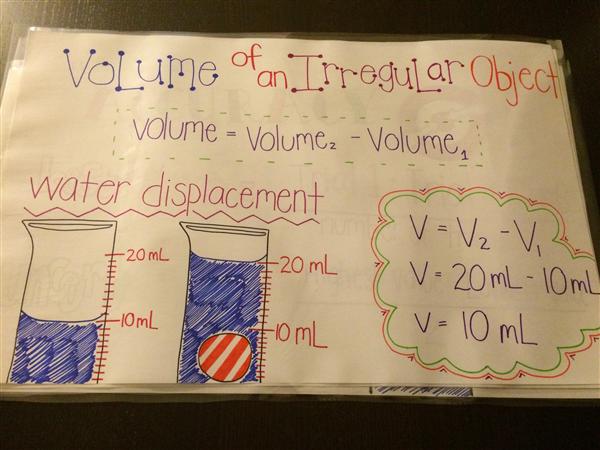 Volume of an Irregular Object
Volume = Volume₂ - Volume₁
water displacement
20 mL
10 mL
20 mL
10 mL
V = V₂ - V₁
V = 20 mL - 10 mL
V = 10 mL